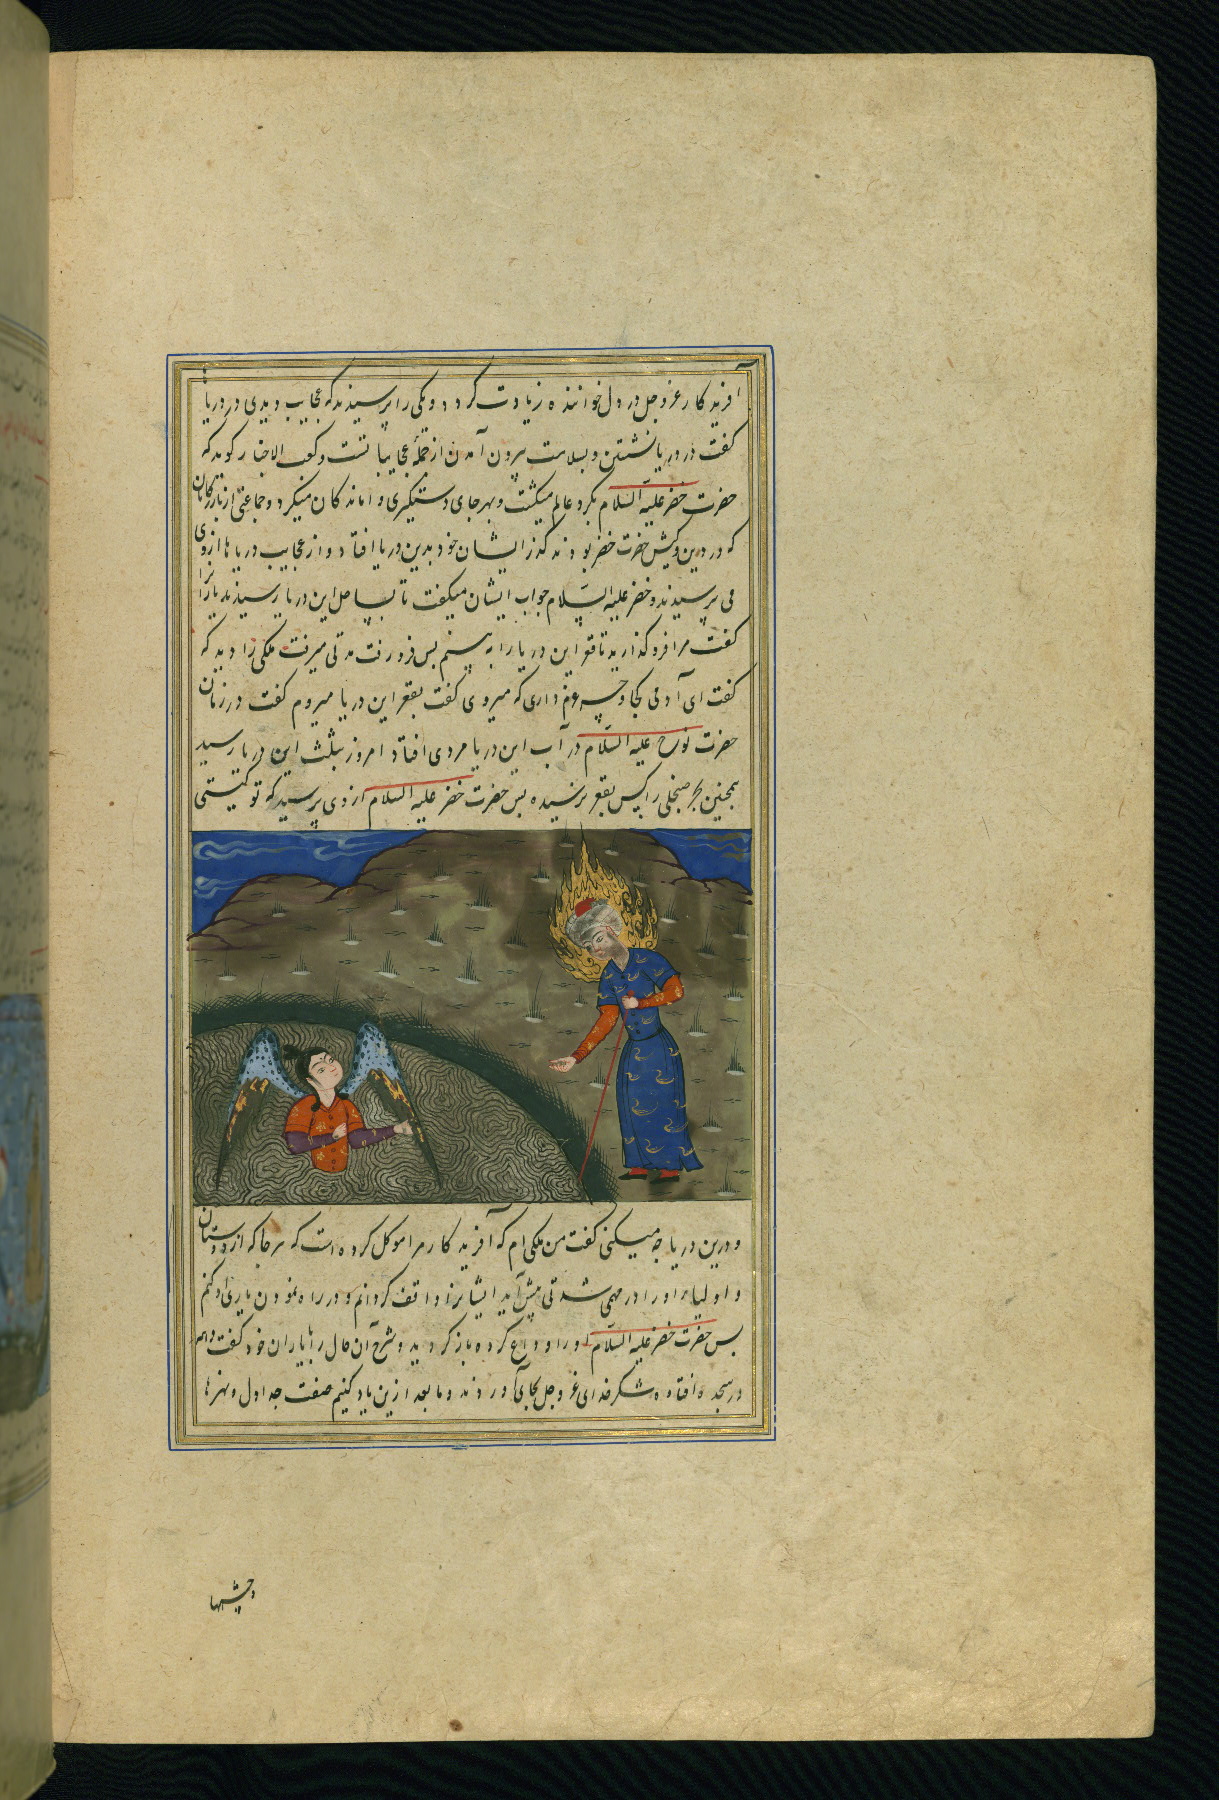 آفریدکار عز و جل در دل خواننده زیادت کردد و یکی را پرسیدند که عجایب دیدی در دریا
کفت در دریا نشستن و بسلامت بیرون آمدن از جملهٔ عجایبها تست و کعب الاخبار کوید که
حضرت خضر علیه السلام بکرد عالم میکشت و بهر جای دستکیری واماندکان میکرد و جماعتی از بازرکانان
که در دین و کیش حضرت خضر بودند که از ایشان خود بدین دریا افتاد و از عجایب دریاها از وی
می پرسیدند و خضر علیه السلام جواب ایشان میکفت تا بساحل این دریا رسیدند یارانرا
کفت مرا فرو کذارید تا قعر این دریا را به بینم بس فرو رفت مدتی میرفت ملکی را دید که
کفت ای آدمی کجا و چه عزم داری که میروی کفت بقعر این دریا میروم کفت در زمان
حضرت نوح علیه السلام در آب این دریا مردی افتاد امروز بثلث این دریا رسید
همچنین بقعر نرسیده بس حضرت خضر علیه السلام از وی پرسید که تو کیستی
و درین دریا چه میکنی کفت من ملکی ام که آفریدکار مرا موکل کرده است که هر جا که از دوستان
و اولیاء او را در مهمی شدتی پیش آید ایشانرا واقف کردانم و در راه نمودن یاری او کنم
بس حضرت خضر علیه السلام او را وداع کرده باز کردید و شرح آن حال را با یاران خود کفت و هم
در سجده افتاده شکر خدای عز و جل بجای آوردند و ما بعد ازین یاد کنیم صفت جداول و نهرها
و چشمها